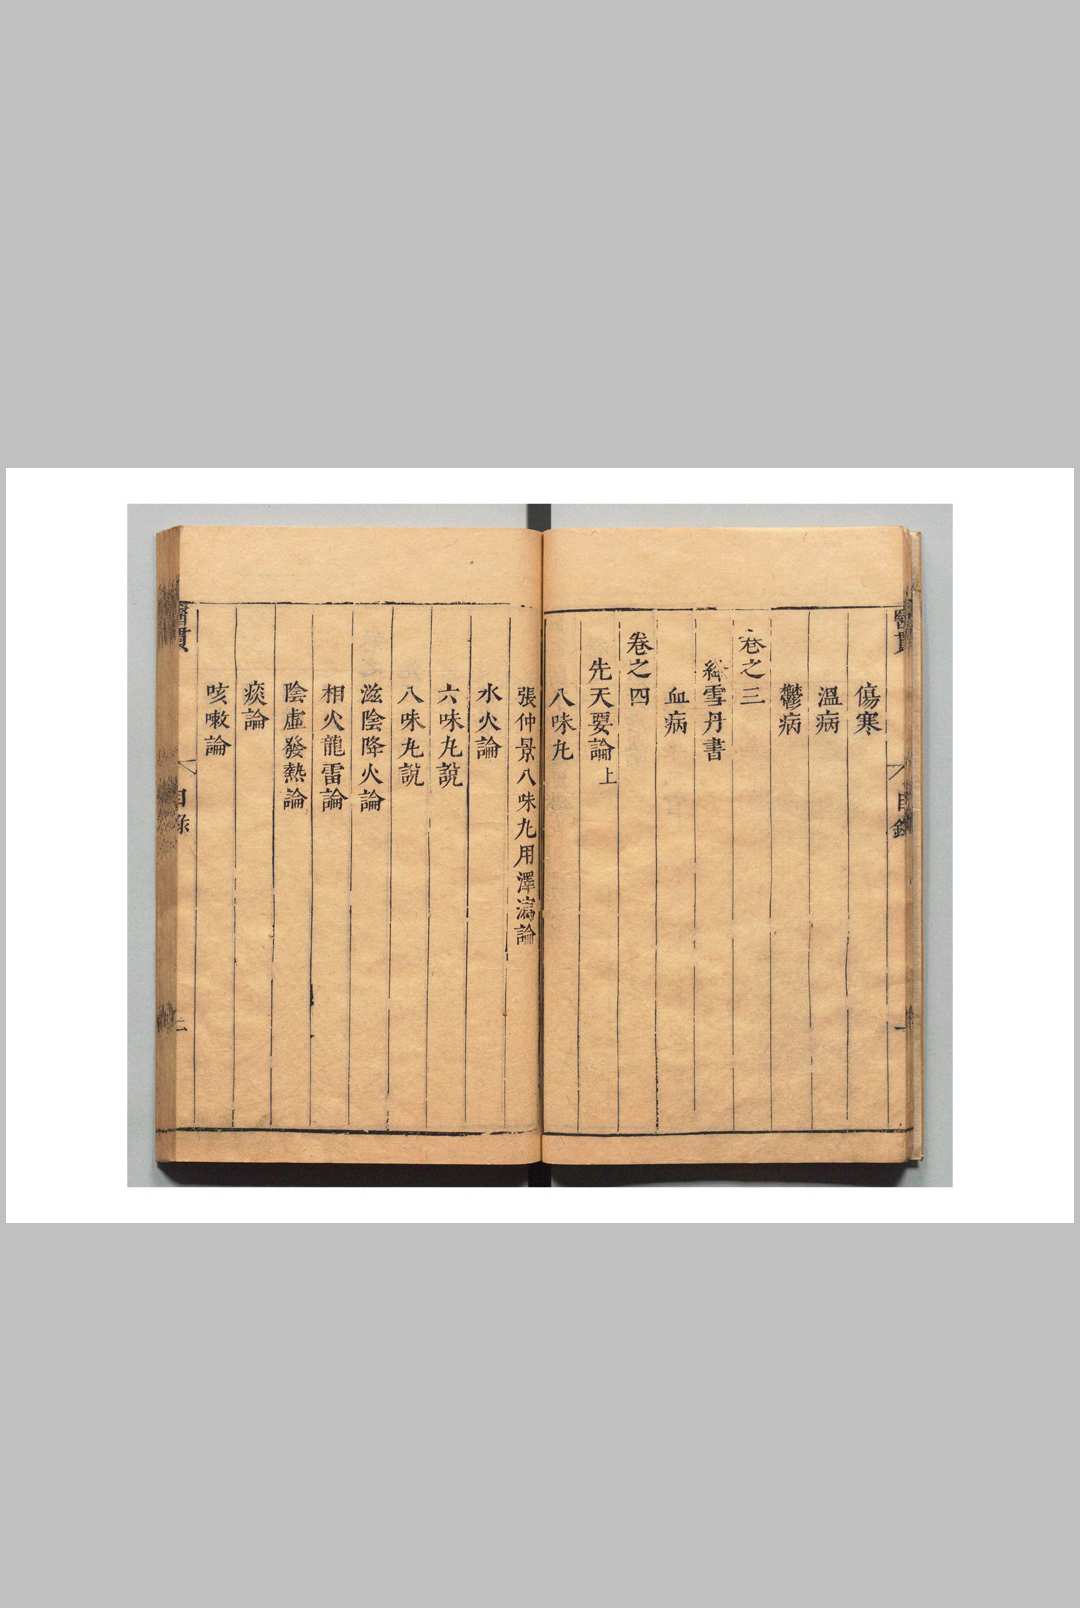 傷寒
溫病
鬱病
卷之三
絳雪丹書
血病
卷之四
先天要論上
八味丸
張仲景八味丸用澤瀉論
水火論
六味丸說
八味丸說
滋陰降火論
相火龍雷論
陰虛發熱論
痰論
咳嗽論
醫貫
目錄
二
醫貫
目錄
一